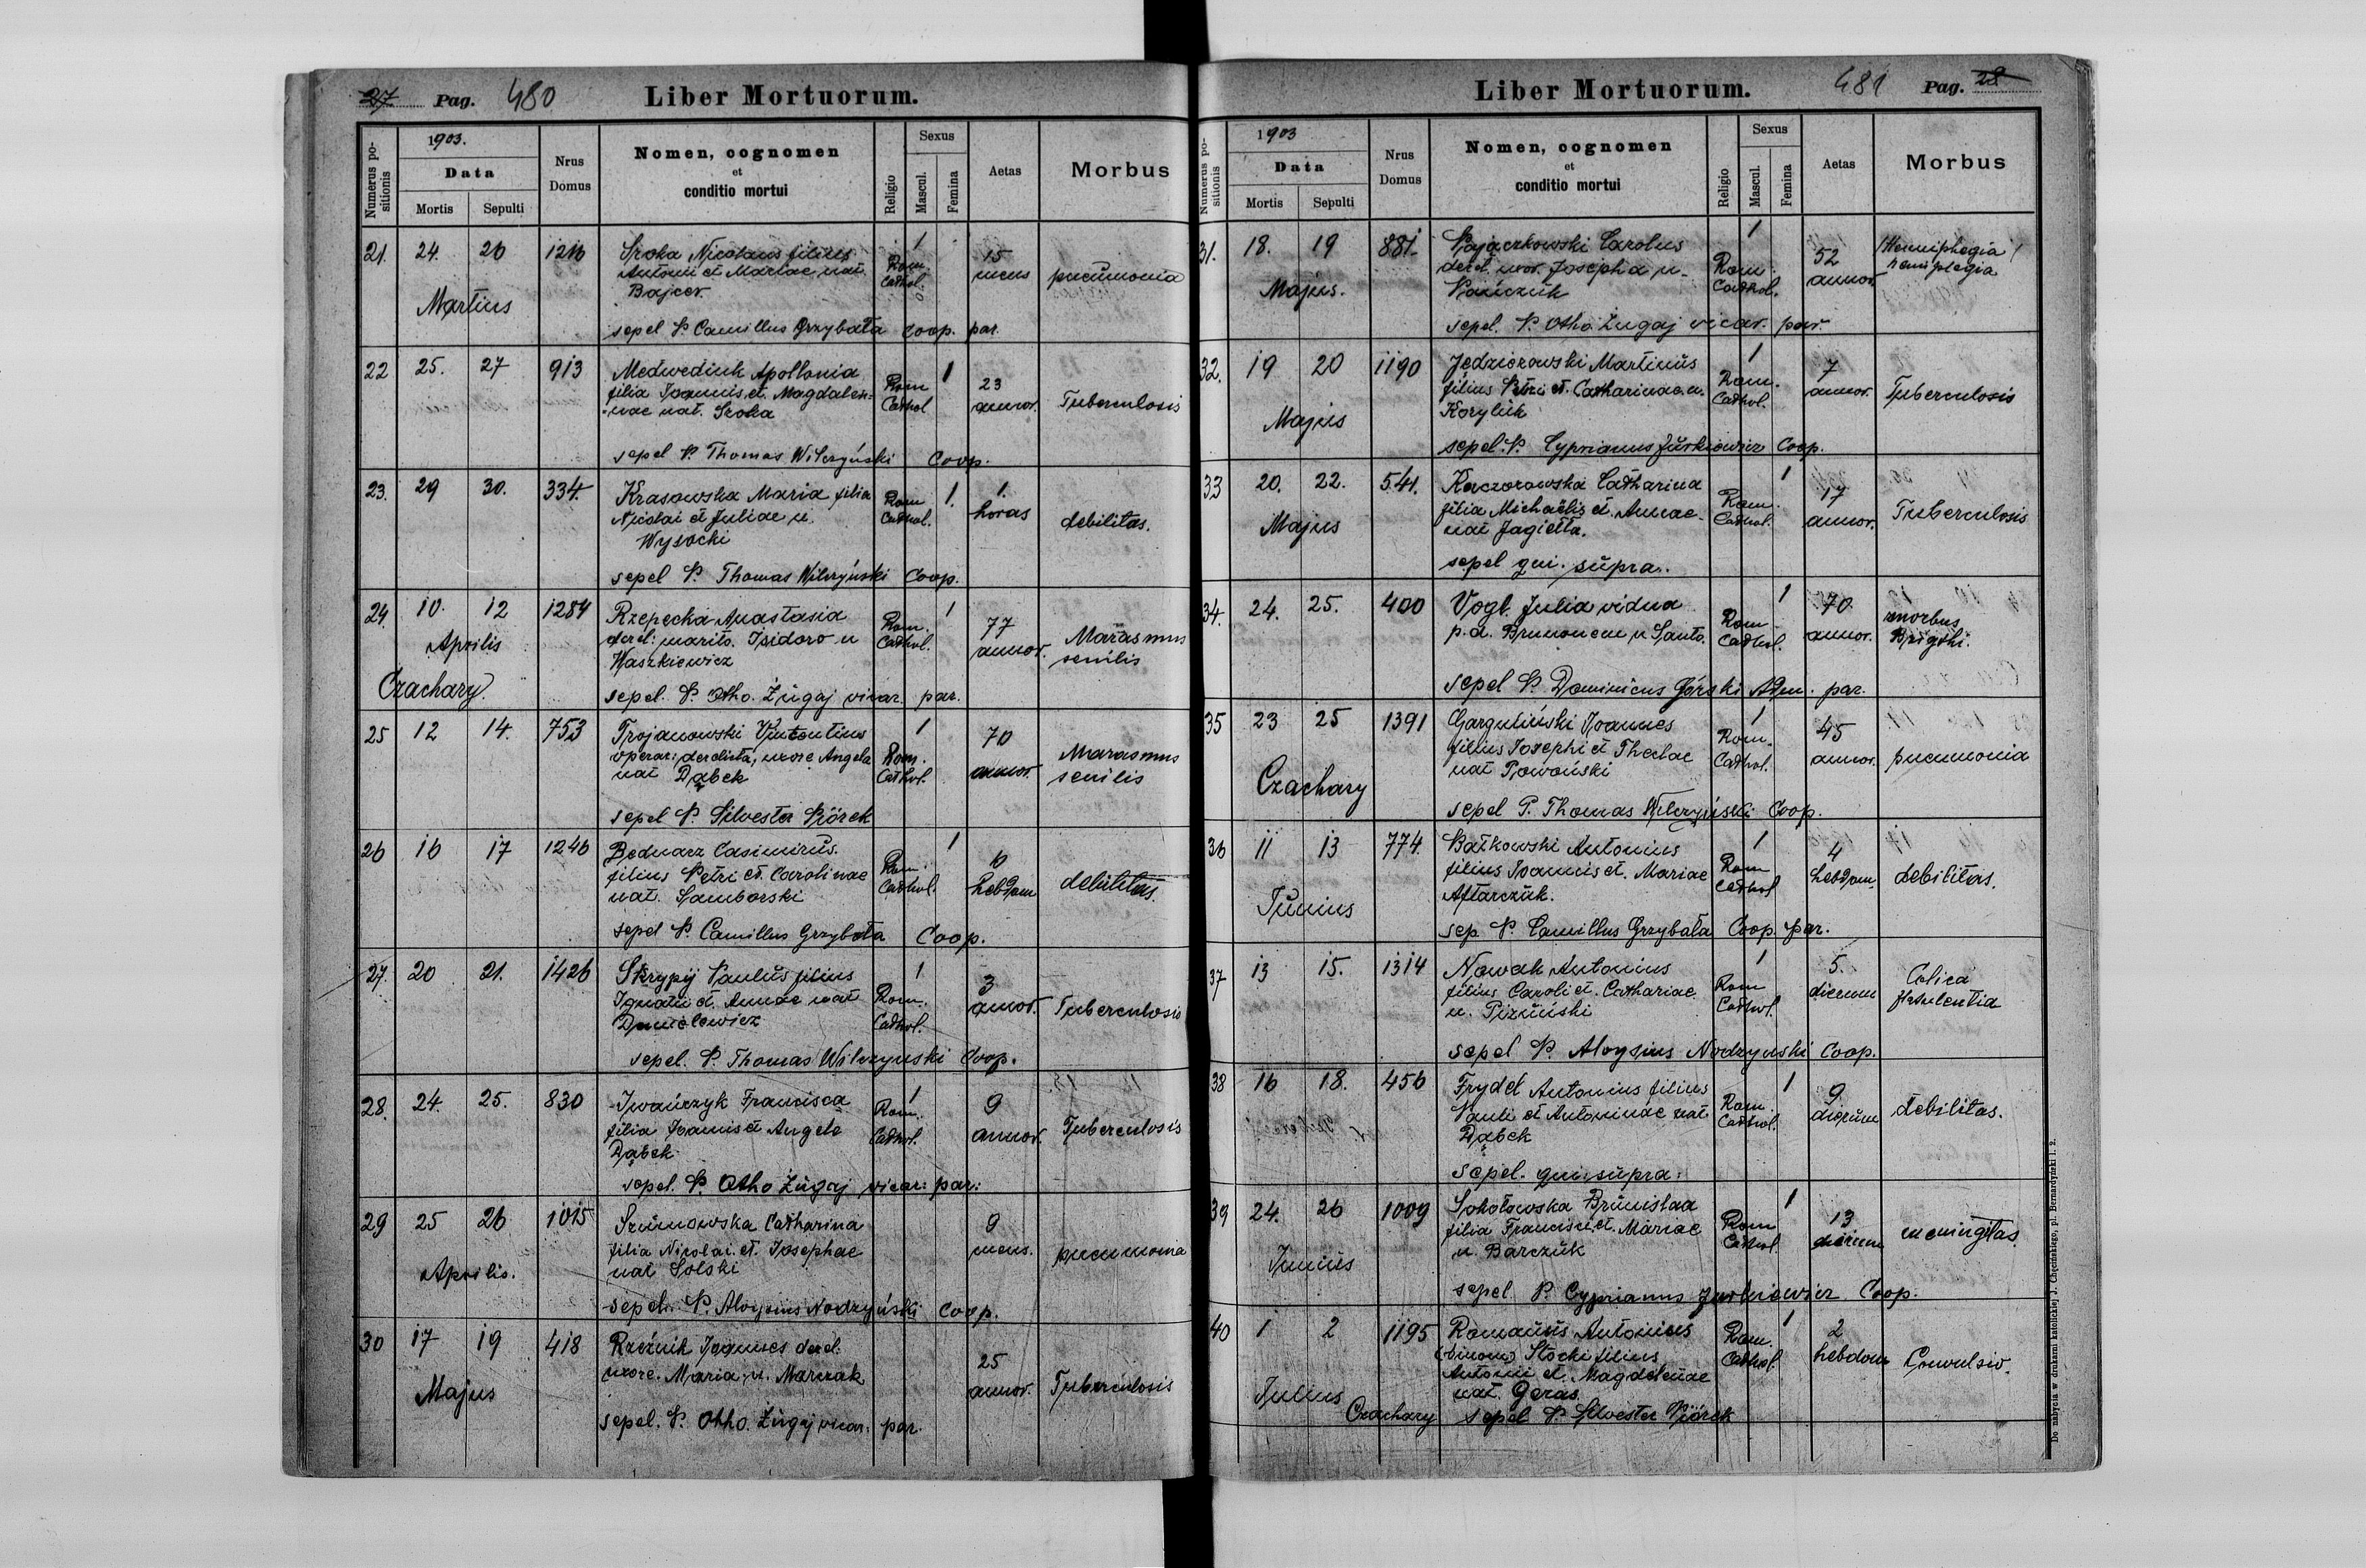 27 Pag. 480 Liber Mortuorum.
Numerus positionis
1903.
Data
Mortis Sepulti
Nrus Domus
Nomen, cognomen
et
conditio mortui
Religio
Sexus
Mascul. Femina
Aetas
Morbus
21. 24. 26 1216 Sroka Nicolaus filius 1 15
Antonii et Mariae nat. Rom. mens pneumonia
Bajcer. Cathol.
Martius
sepel P. Camillus Grzybała coop. par.
22 25. 27 913 Medwediuk Apollonia 1
filia Joannis et Magdalen= Rom 23
nae nat. Sroka Cathol annor. Tuberculosis
sepel P. Thomas Wilczyński Coop.
23. 29 30. 334. Krasowska Maria filia Rom 1. 1.
Nicolai et Juliae n. Cathol. horas debilitas.
Wysocki
sepel P. Thomas Wilczyński Coop.
24. 10. 12 1284 Rzepecka Anastasia 1
Aprilis derel: marito. Isidoro n Rom. 77 Marasmus
Waszkiewicz Cathol. annor. senilis
Czachary.
sepel. P. Otho. Żugaj vicar. par.
25 12 14. 753 Trojanowski Vincentius 1 70
operar: derelicta, uxore Angela Rom. Marasmus
nat Dąbek Cathol. annor. senilis
sepel P. Silvester Piórek
26 16 17 1246 Bednarz Casimirus. 1
filius Petri et. Carolinae Rom. 6
nat. Samborski Cathol. hebdom debilitas.
sepel P. Camillus Grzybała Coop.
27. 20 21. 1426 Skrypij Paulus filius 1
Ignatii et Annae nat Rom. 3
Danielewicz Cathol. annor. Tuberculosis
sepel. P. Thomas Wilczynski Coop.
28. 24. 25. 830 Iwańczyk Francisca 1
filia Joannis et Angela Rom. 9
Dąbek Cathol. annor. Tuberculosis
sepel. P. Otho Żugaj vicar: par:
29 25 26 1015 Szumowska Catharina 9
filia Nicolai. et. Josephae mens. pneumonia
nat Solski
Aprilis.
sepel. P. Aloysius Nodzyński Coop.
30 17 19 418 Rzeźnik Joannes derel.
uxore. Maria n. Marczak 25
Majus annor. Tuberculosis
sepel. P. Otho. Żugaj vicar. par.
Liber Mortuorum. 481 Pag. 28
Numerus positionis
1903
Data
Mortis Sepulti
Nrus Domus
Nomen, cognomen
et
conditio mortui
Religio
Sexus
Mascul. Femina
Aetas
Morbus
31. 18. 19 881. Pajączkowski Carolus 1 52 /Hemiphegia/
derel. uxor. Josepha n- Rom. annor. hemiplegia
Cathol.
Majus.
sepel. P. Otho. Żugaj vicar. par.
32. 19 20 1190 Jędziorowski Martinus 1 7
filius Petri et. Catharinae n. Rom. annor. Tuberculosis
Koryluk Cathol.
Majus
sepel. P. Cyprianus Jurkiewicz Coop.
33 20. 22. 541. Kaczorowska Catharina 1 17
filia Michaëlis et. Annae- Rom. annor. Tuberculosis
nat Jagiełła. Cathol.
Majus
sepel qui. supra.
34. 24. 25. 400 Vogl. Julia vidua 1 70 morbus
p. d. Brunonem n Santo. Rom. annor. Brigthi.
Cathol.
sepel P. Dominicus Górski Adm. par.
35 23 25 1391 Garguliński Joannes 1 45
filius Josephi et Theclae Rom. annor. pneumonia
nat Cathol.
Czachary
sepel P. Thomas Wilczyński Coop.
36 11 13 774. Bałkowski Antonius 1 4
filius Joannis et. Mariae Rom hebdom. debilitas.
Aftarczuk. Cathol
Junius
sep. P. Camillus Grzybała Coop. par.
37 13 15. 1314 Nowak Antonius 1 5. Colica
filius Caroli et. Cathariae Rom dierum flatulentia
n. Piziński Cathol.
sepel P. Aloysius Nodzynski Coop.
38 16 18. 456 Frydel Antonius filius 1 9.
Pauli et Antoninae nat Rom. dierum debilitas.
Dąbek Cathol.
sepel. qui supra.
39 24. 26 1009 Sokołowska Brunislaa 1 13
filia Francisci et. Mariae Rom dierum meningitas.
n. Barczuk Cathol.
Junius
sepel P. Cyprianus Jurkiewicz Coop.
40 1 2 1195 Romanus Antonius 1 2
(binom) Stocki filius Rom. hebdom Convulsio.
Antonii et. Magdalenae Cathol.
nat. Geras.
Julius Czachary sepel P. Silvester Piórek
Do nabycia w drukarni katolickiej J. Chęcińskiego, pl. Bernardyński l. 2.